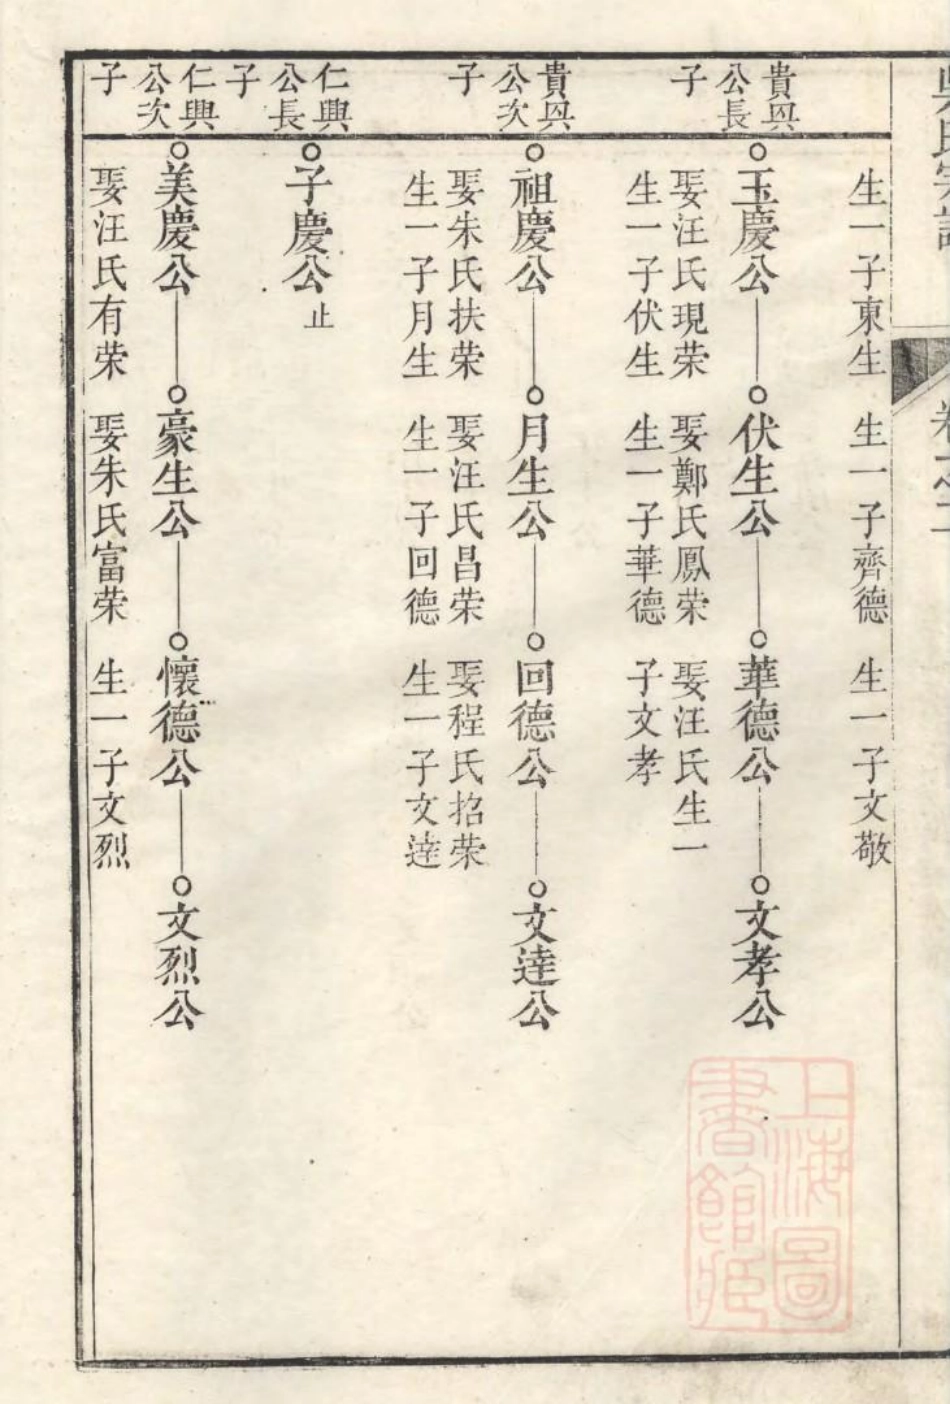 生一子東生　生一子齊德　生一子文敬
貴興
公長
子
玉慶公　伏生公　華德公　文孝公
娶汪氏現荣　娶鄭氏鳳荣　娶汪氏生一
生一子伏生　生一子華德　子文孝
貴興
公次
子
祖慶公　月生公　回德公　文逹公
娶朱氏扶荣　娶汪氏昌荣　娶程氏招荣
生一子月生　生一子回德　生一子文逹
仁興
公長
子
子慶公止
仁興
公次
子
美慶公　豪生公　懷德公　文烈公
娶汪氏有荣　娶朱氏富荣　生一子文烈
上海圖
書館藏